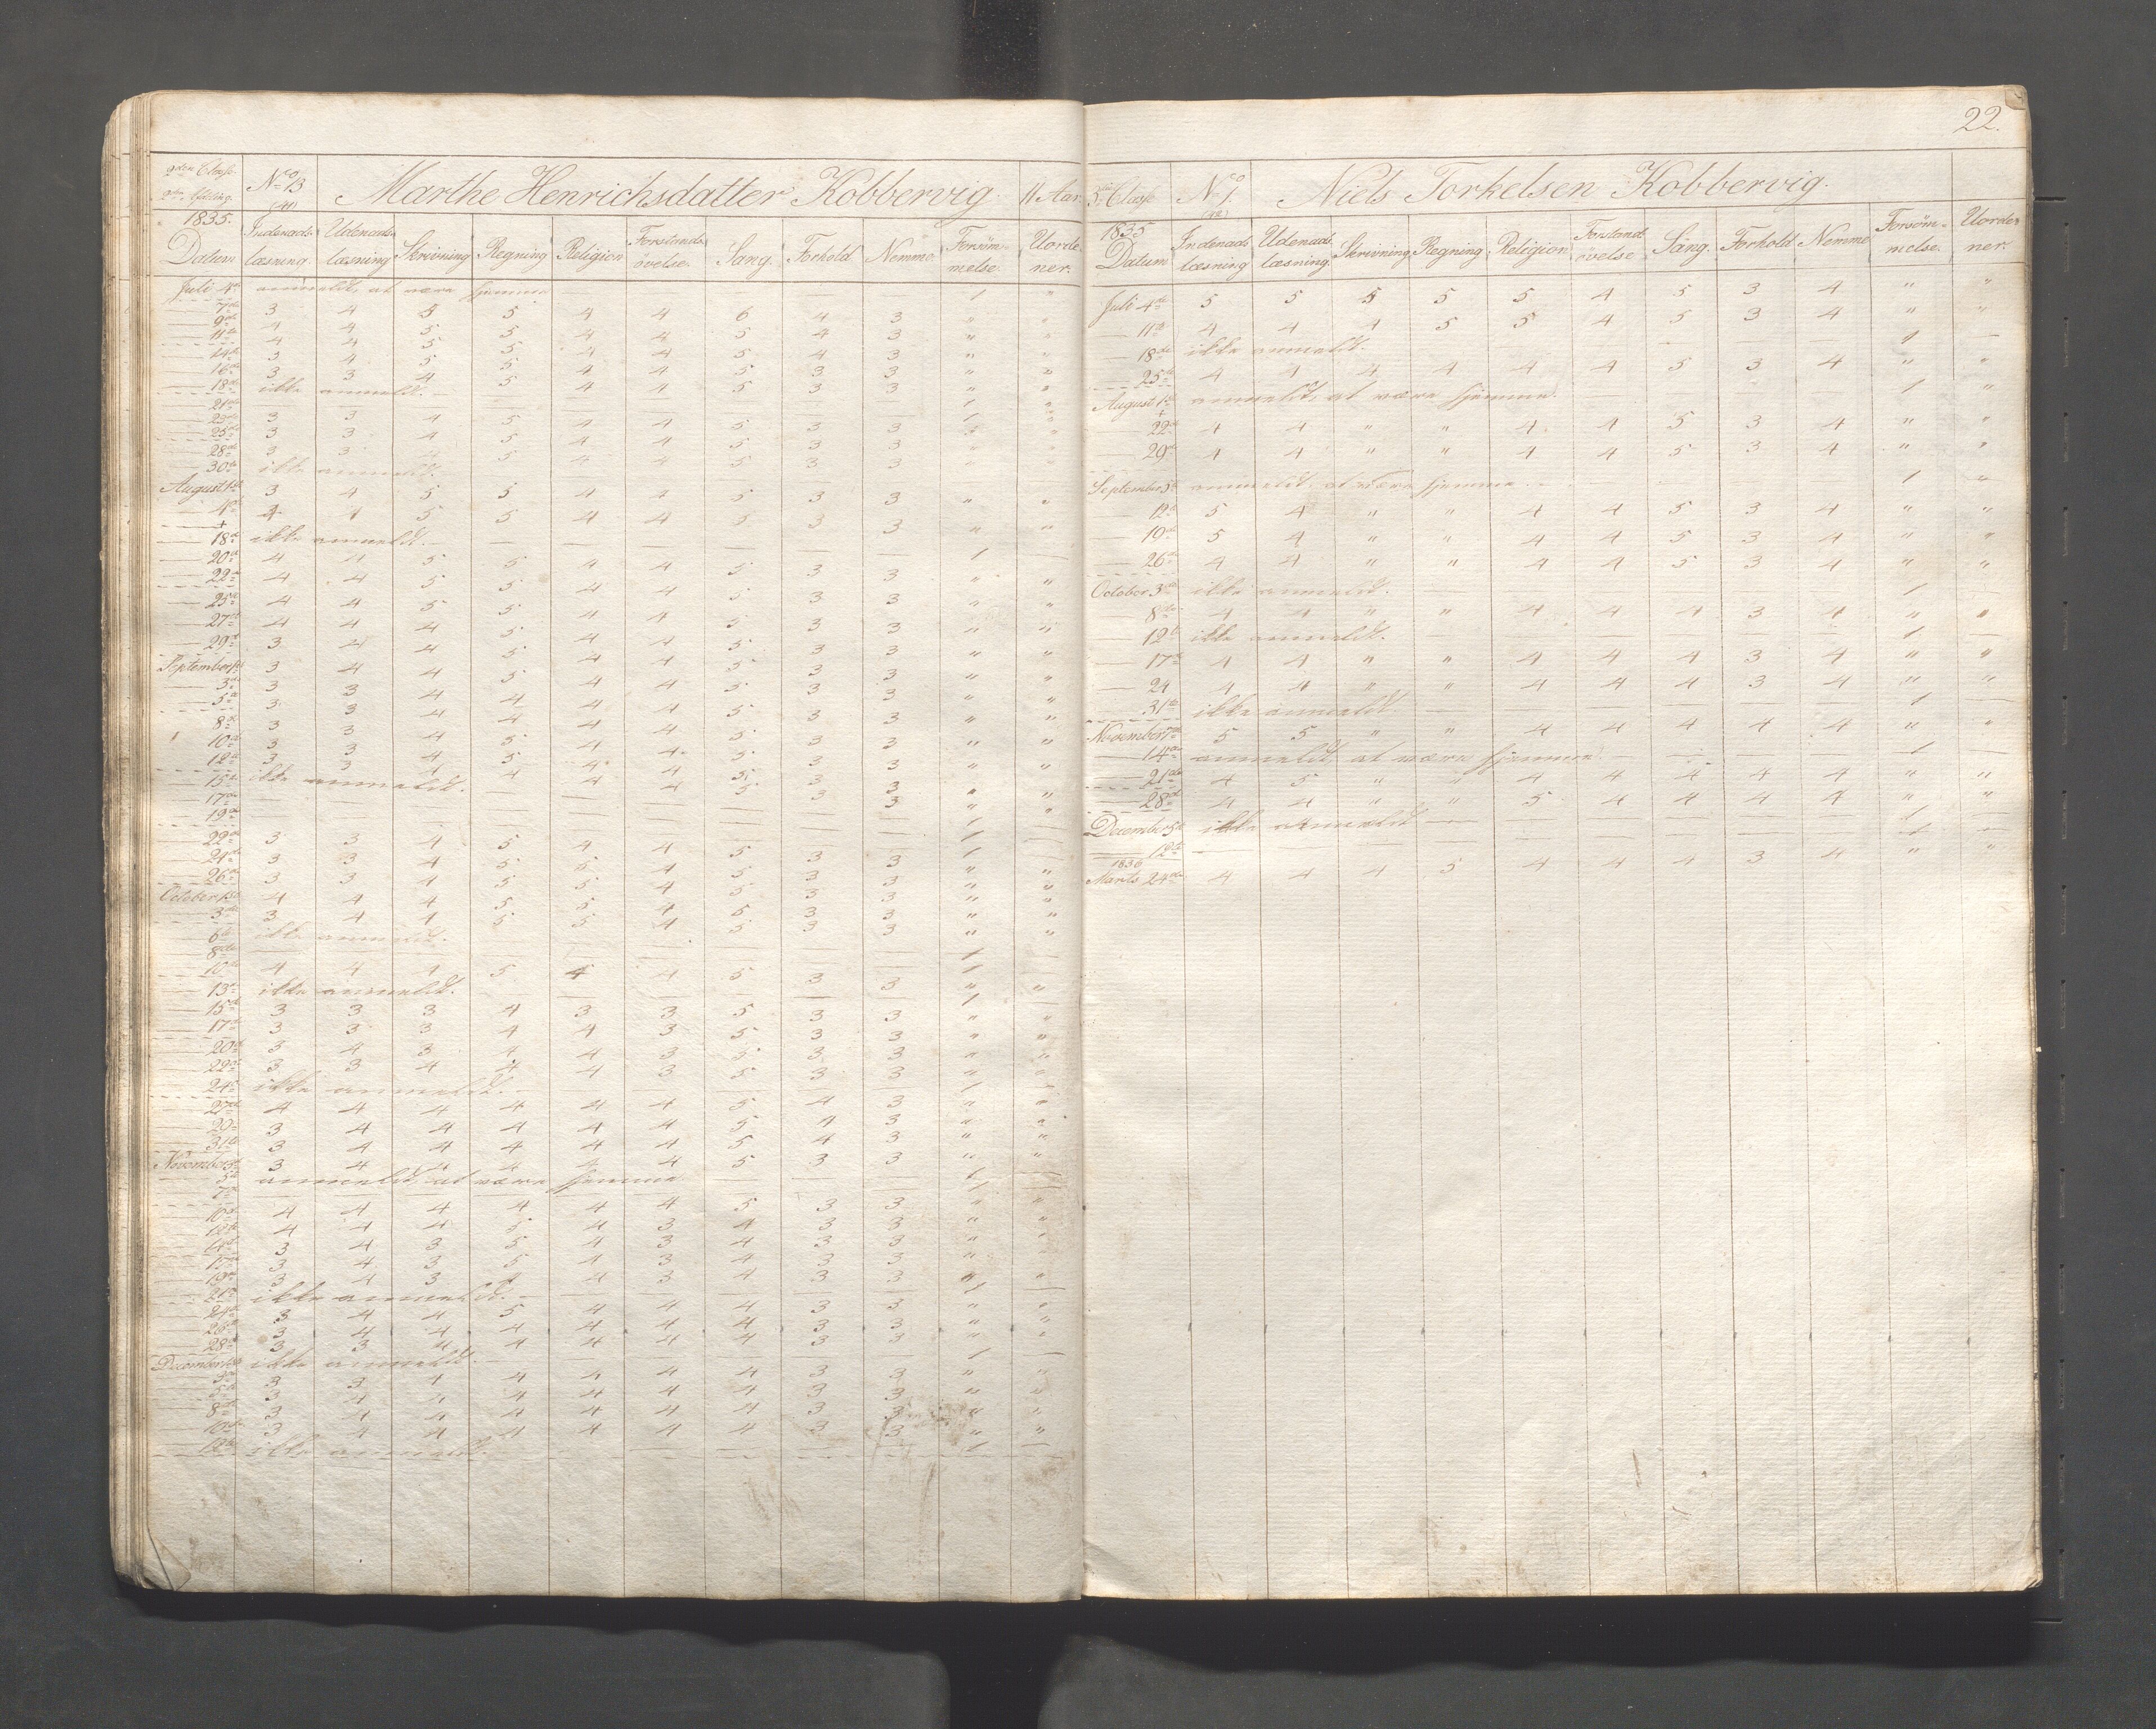 22.
2den Classe
2den Afdeling.
No 13
(41)
Marthe Henrichsdatter Kobbervig
11 Aar.
1835.
Datum
Indenads-læsning
Udenads-læsning
Skrivning
Regning
Religion
Forstands-øvelse.
Sang.
Forhold
Nemme.
Forsøm-melse.
Uorde-ner.
Juli 4de anmeldt, at være hjemme — — — — — 1 "
— 7de 3 4 5 5 4 4 6 4 3 " "
— 9de 4 4 5 5 4 4 5 4 3 " "
— 11te 4 4 5 5 4 4 5 4 3 " "
— 14de 3 4 5 5 4 4 5 3 3 " "
— 16de 3 3 4 5 4 4 5 3 3 " "
— 18de ikke anmeldt.
— 21de
— 23de 3 3 4 5 4 4 5 3 3
— 25de 3 3 4 5 4 4 5 3 3
— 28de 3 3 4 5 4 4 5 3 3
— 30te ikke anmeldt.
August 1ste 3 4 5 5 4 4 5 3 3 " "
— 4de 4 4 5 5 4 4 5 3 3 " "
— 18de ikke anmeldt. — 1 —
— 20de 4 4 5 5 4 4 5 3 3 " "
— 22de 4 4 5 5 4 4 5 3 3 " "
— 25de 4 4 5 5 4 4 5 3 3 " "
— 27de 4 4 4 5 4 4 5 3 3 " "
— 29de 3 4 4 5 4 4 5 3 3 " "
September 1ste 3 4 4 5 4 4 5 3 3 " "
— 3de 3 3 4 4 4 4 5 3 3 " "
— 5te 3 3 4 4 4 4 5 3 3 " "
— 8de 3 3 4 5 4 4 5 3 3 " "
— 10de 3 3 4 5 4 4 5 3 3 " "
— 12te 3 3 4 4 4 4 5 3 3 " "
— 15de ikke anmeldt. — 1
— 17de — 1
— 19de — 1
— 22de 3 3 4 5 4 4 5 3 3 " "
— 24de 3 3 4 5 5 4 5 3 3 " "
— 26de 3 3 4 5 5 4 5 3 3 " "
October 1ste 4 4 4 5 5 4 6 3 3 " "
— 3de 3 4 4 5 5 4 5 3 3 " "
— 6te ikke anmeldt. — 1 —
— 8de — 1 —
— 10de 4 4 4 5 4 4 5 3 3 " "
— 13de ikke anmeldt. — 1 —
— 15de 3 3 3 4 3 3 5 3 3 " "
— 17de 3 3 3 4 4 3 5 3 3 " "
— 20de 3 4 3 4 4 3 5 3 3 " "
— 22de 3 3 4 4 4 3 5 3 3 " "
— 24de ikke anmeldt. — 1 —
— 27de 4 4 4 4 4 4 5 4 3 " "
— 29 3 4 4 4 4 4 5 4 3 " "
— 31te 3 4 4 4 4 4 5 4 3 " "
November 3de 3 4 4 4 4 4 5 3 3 " "
— 5te anmeldt, at være hjemme — 1 —
— 7de — 1 —
— 10de 4 4 4 4 4 4 5 3 3 " "
— 12te 4 4 4 5 4 3 4 3 3 " "
— 14de 3 4 3 5 4 3 4 3 3 " "
— 17de 3 4 3 5 4 3 4 3 3 " "
— 19de 3 4 3 4 4 3 4 3 3 " "
— 21de ikke anmeldt. — 1 —
— 24de 3 4 4 5 4 4 4 3 3 " "
— 26de 3 4 4 4 4 4 4 3 3 " "
— 28de 3 3 4 4 4 4 4 3 3 " "
December 1ste ikke anmeldt. — 1 —
— 3de 3 3 4 4 4 4 4 3 3 " "
— 5te 3 4 4 4 4 4 4 3 3 " "
— 8de 3 4 4 4 4 4 4 3 3 " "
— 10de 3 4 4 4 4 4 4 3 3 " "
— 12te ikke anmeldt. — 1 —
3die Classe
No 1.
(42)
Niels Torkelsen Kobbervig.
1835
Datum
Indenads læsning
Udenads læsning.
Skrivning
Regning
Religion
Forstands øvelse
Sang.
Forhold
Nemme
Forsøm-melse.
Uorde-ner.
Juli 4de 5 5 5 5 5 4 5 3 4 " "
— 11te 4 4 4 5 5 4 5 3 4 " "
— 18de ikke anmeldt. — 1 —
— 25de 4 4 4 4 4 4 5 3 4 " "
August 1ste anmeldt, at være hjemme. — 1 "
— 22de 4 4 " " 4 4 5 3 4 " "
— 29de 4 4 " " 4 4 5 3 4 " "
September 5te anmeldt, at være hjemme. — 1 "
— 12te 5 4 " " 4 4 5 3 4 " "
— 19de 5 4 " " 4 4 5 3 4 " "
— 26de 4 4 " " 4 4 5 3 4 " "
October 3de ikke anmeldt. — 1 —
— 8de 4 4 " " 4 4 4 3 4 " "
— 12te ikke anmeldt. — 1 —
— 17de 4 4 " " 4 4 4 3 4 " "
— 24 4 4 " " 4 4 4 3 4 " "
— 31te ikke anmeldt — 1 —
November 7de 5 5 " " 4 4 4 4 4 " "
— 14de anmeldt, at være hjemme — 1 —
— 21de 4 5 " " 4 4 4 4 4 " "
— 28de 4 4 " " 5 4 4 4 4 " "
December 5te ikke anmeldt — 1 —
— 12te — 1 —
1836
Marts 24de 4 4 4 5 4 4 4 3 4 " "